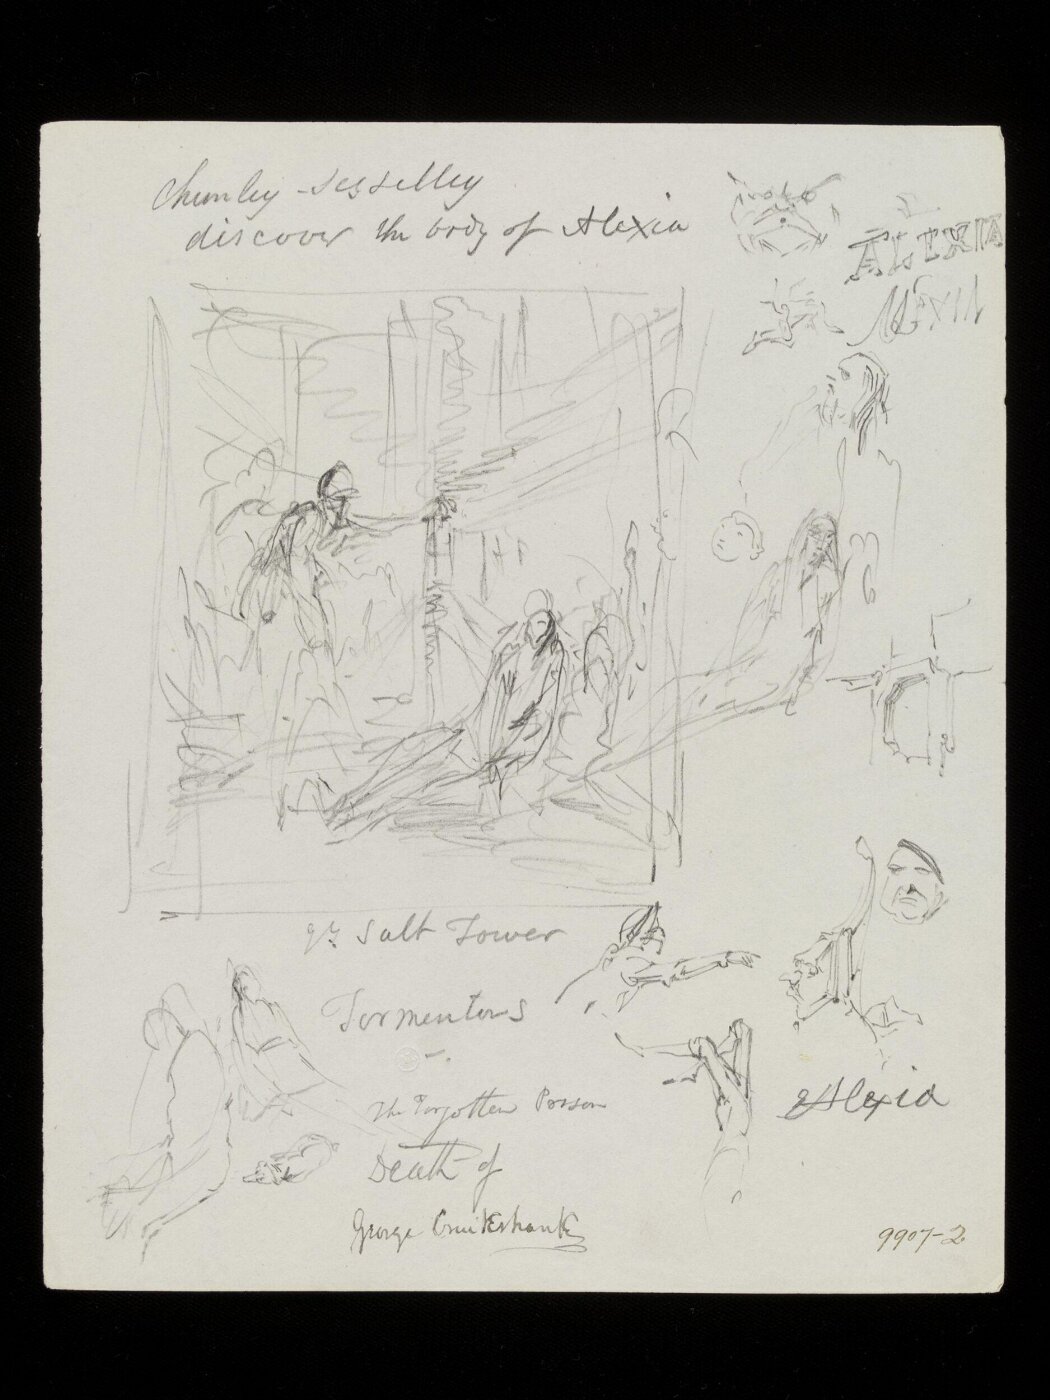 discover the body of Alexia
ALEXIA
qy Salt Tower
Tormentors
The Forgotten Prison
Death of
Alexia
George Cruikshank
9907-2